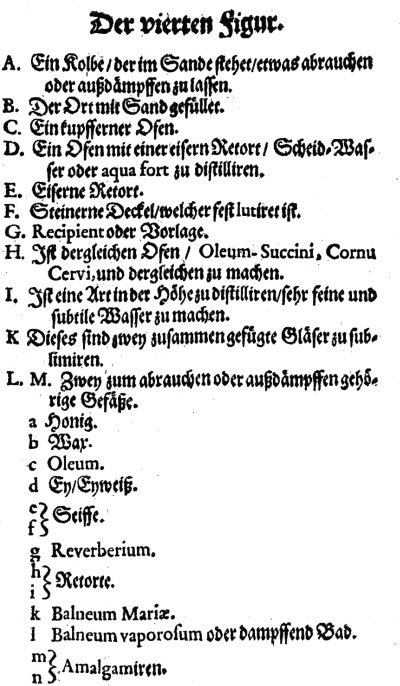 Der vierten Figur.
A. Ein Kolbe/ der im Sande stehet/etwas abrauchen
oder außdämpffen zu lassen.
B. Der Ort mit Sand gefüllet.
C. Ein kupfferner Ofen.
D. Ein Ofen mit einer eisern Retort/ Scheid-Was-
ser oder aqua fort zu distilliren.
E. Eiserne Retort.
F. Steinerne Deckel/welcher fest lutiret ist.
G. Recipient oder Vorlage.
H. Ist dergleichen Ofen / Oleum-Succini, Cornu
Cervi, und dergleichen zu machen.
I. Ist eine Art in der Höhe zu distilliren/sehr feine und
subtile Wasser zu machen.
K Dieses sind zwey zusammen gefügte Gläser zu sub-
limiren.
L. M. Zwey zum abrauchen oder außdämpffen gehö-
rige Gefäße.
a Honig.
b Wax.
c Oleum.
d Ey/Eyweiß.
e
f } Seiffe.
g Reverberium.
h
i } Retorte.
k Balneum Mariæ.
l Balneum vaporosum oder dampffend Bad.
m
n } Amalgamiren.